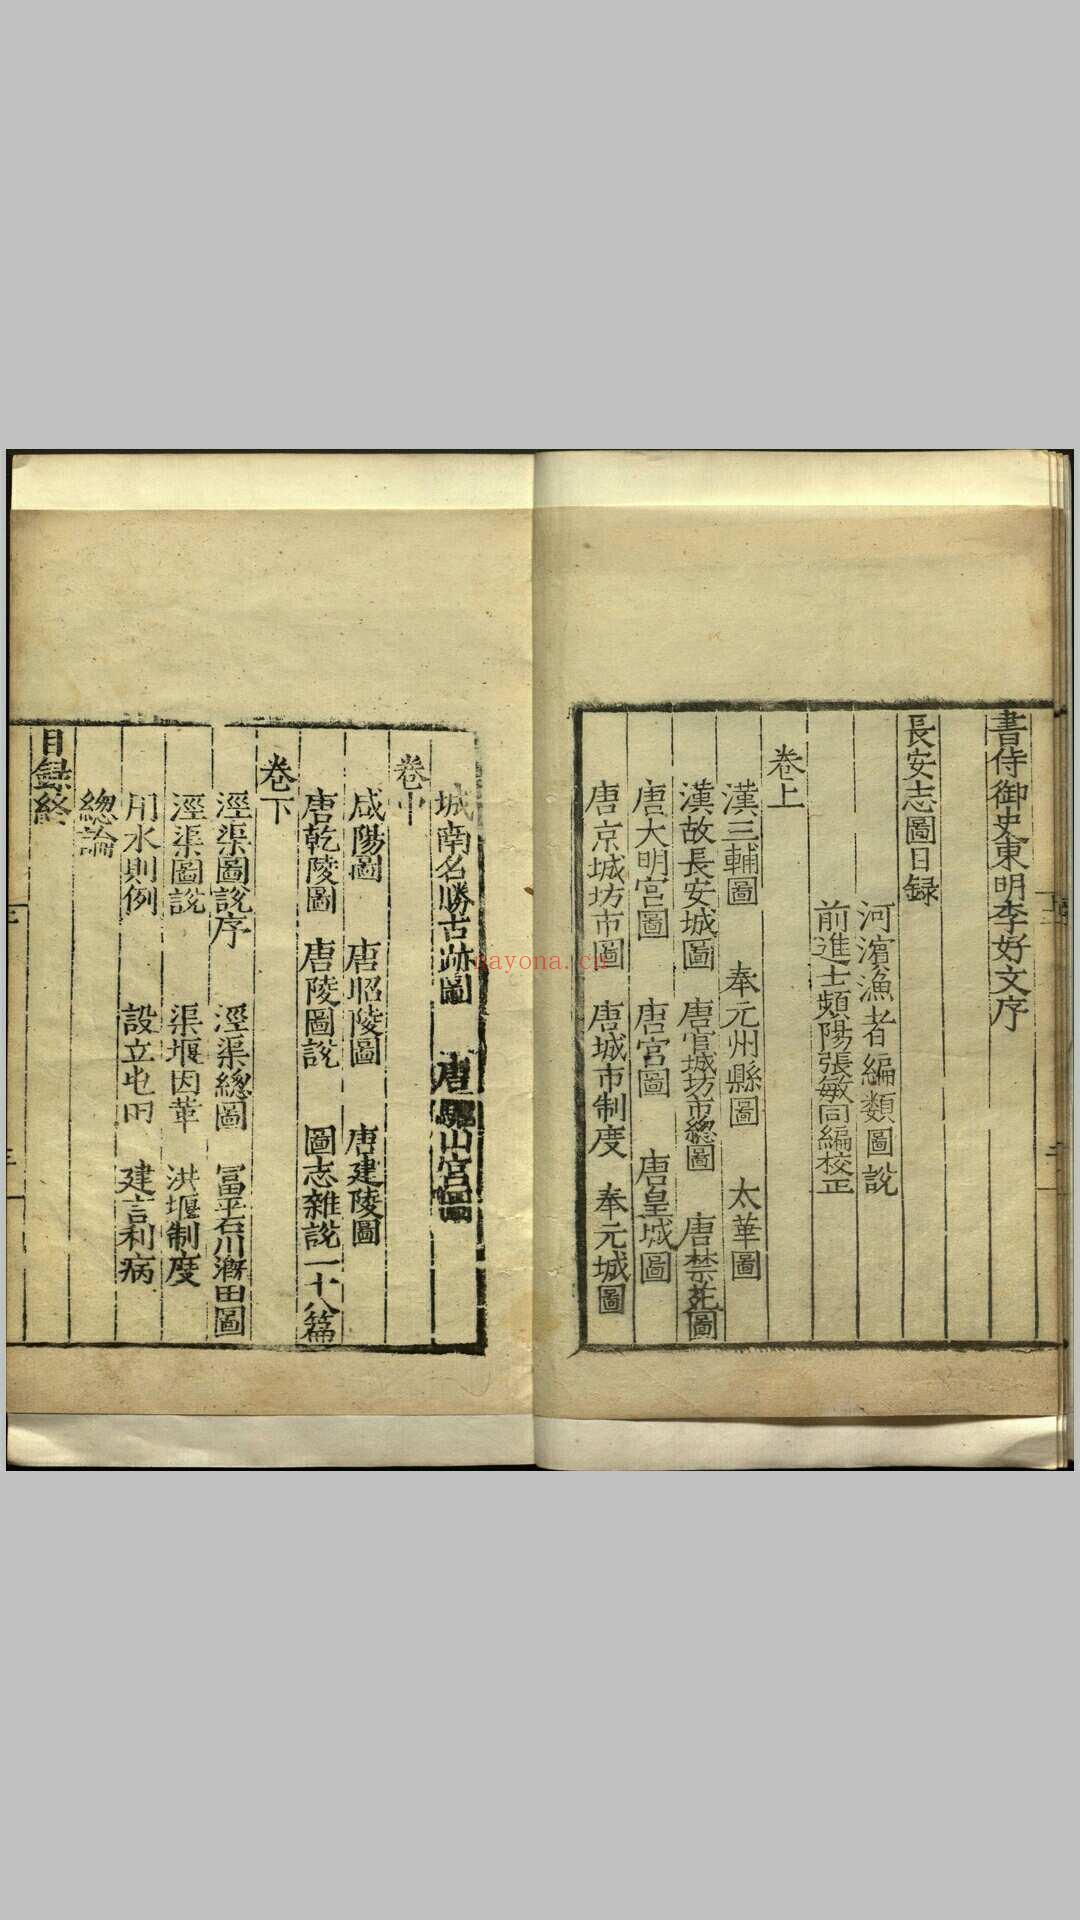 書侍御史東明李好文序
長安志圖目録
河濱漁者編類圖說
前進士頻陽張敏同編校正
卷上
漢三輔圖 奉元州縣圖 太華圖
漢故長安城圖 唐宮城坊市總圖 唐禁苑圖
唐大明宮圖 唐宮圖 唐皇城圖
唐京城坊市圖 唐城市制度 奉元城圖
城南名勝古跡圖 唐驪山宮圖
卷中
咸陽圖 唐昭陵圖 唐建陵圖
唐乾陵圖 唐陵圖說 圖志雜說一十八篇
卷下
涇渠圖說序 涇渠總圖 富平石川溉田圖
涇渠圖說 渠堰因革 洪堰制度
用水則例 設立屯田 建言利病
總論
目録終
nayona.cn